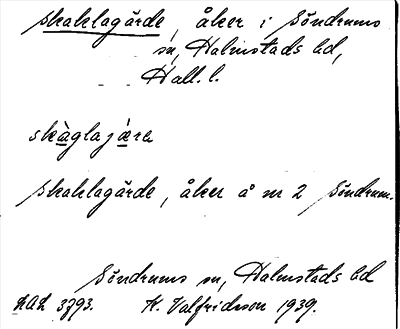 skaklagärde, åker i Söndrums
sn, Halmstads hd,
Hall. l.
skàglajæ̀ra
skaklagärde, åker å nr 2 Söndrum.
Söndrums sn, Halmstads hd
LAL 3793. K. Valfridsson 1939.